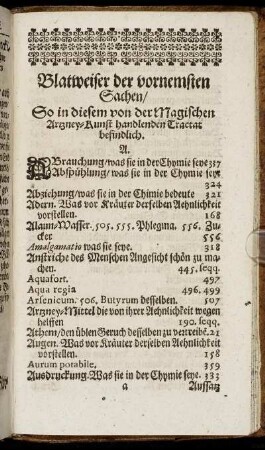 Blatweiser der vornemsten
Sachen/
So in diesem von der Magischen
Artzney-Kunst handlenden Tractat
befindlich.
A.
ABrauchung/was sie in der Chymie seye 357
Abspühlung/was sie in der Chymie seye
324
Abziehung/was sie in der Chimie bedeute 321
Adern. Was vor Kräuter derselben Aehnlichkeit
vorstellen. 168
Alaun/Wasser. 505. 555. Phlegma. 556. Zu-
cker 556
Amalgamatio was sie seye. 318
Anstriche des Menschen Angesicht schön zu ma-
chen. 445. seqq.
Aquafort. 497
Aqua regia 496, 499
Arsenicum. 506. Butyrum desselben. 507
Artzney-Mittel die von ihrer Aehnlichkeit wegen
helffen 190. seqq.
Athem/den üblen Geruch desselben zu vertreibē. 21
Augen. Was vor Kräuter derselben Aehnlichkeit
vorstellen. 158
Aurum potabile. 359
Ausdruckung. Was sie in der Chymie seye. 333
a Aussatz